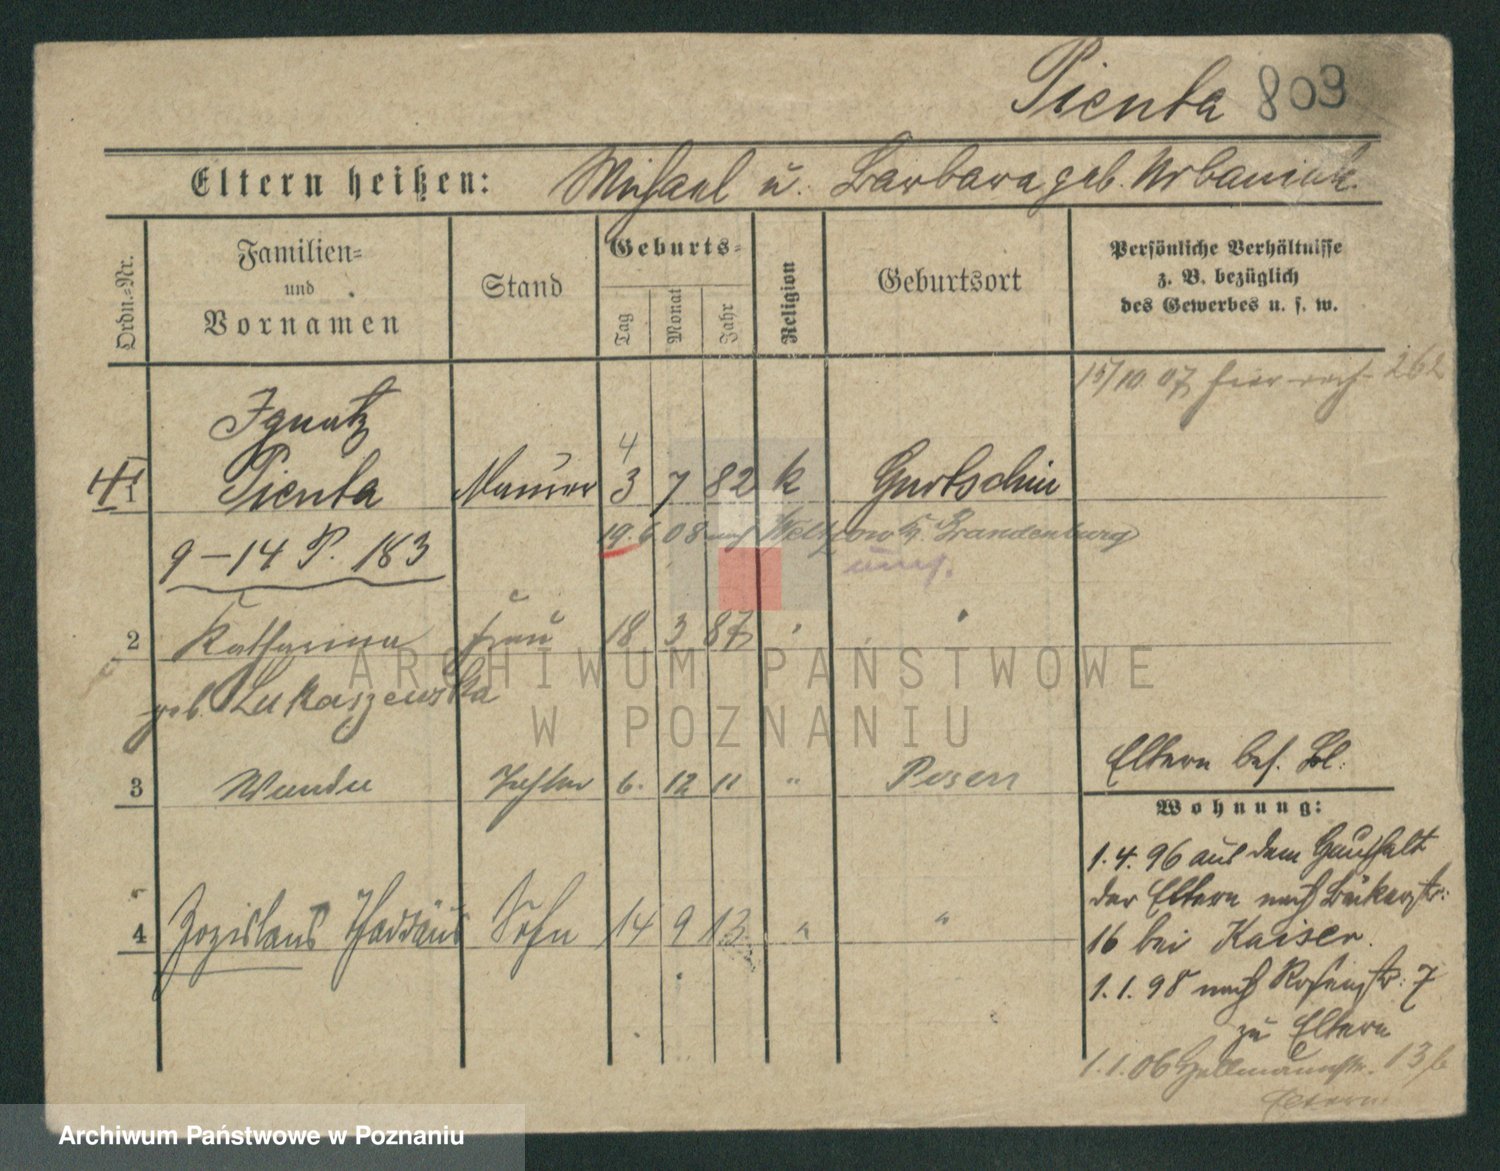 Pienta 803
Eltern heißen: Michael u. Barbara geb. Urbaniak.
Ordn.-Nr.
Familien-
und
Vornamen
Stand
Geburts-
Tag
Monat
Jahr
Religion
Geburtsort
Persönliche Verhältnisse
z. B. bezüglich
des Gewerbes u. s. w.
15/10 07 262
Ignatz
4
1 Pienta Maurer 3 7 82 k Gurtschin
19. 6 08 nach Weltzow Brandenburg
9–14 P. 183
2 Katharina Frau 18 3 87 "
geb. Lukaszewska
ARCHIWUM PAŃSTWOWE
W POZNANIU
Eltern bes. Bl.
3 Wanda Tochter 6. 12 11 " Posen
Wohnung:
1.4.96 aus dem Haushalt
der Eltern nach Bäckerstr.
4 Thaddäus Sohn 14 9 13 " "
16 bei Kaiser.
1.1.98 nach Rosenstr. 7
zu Eltern
1.1.06 13
Eltern
Archiwum Państwowe w Poznaniu